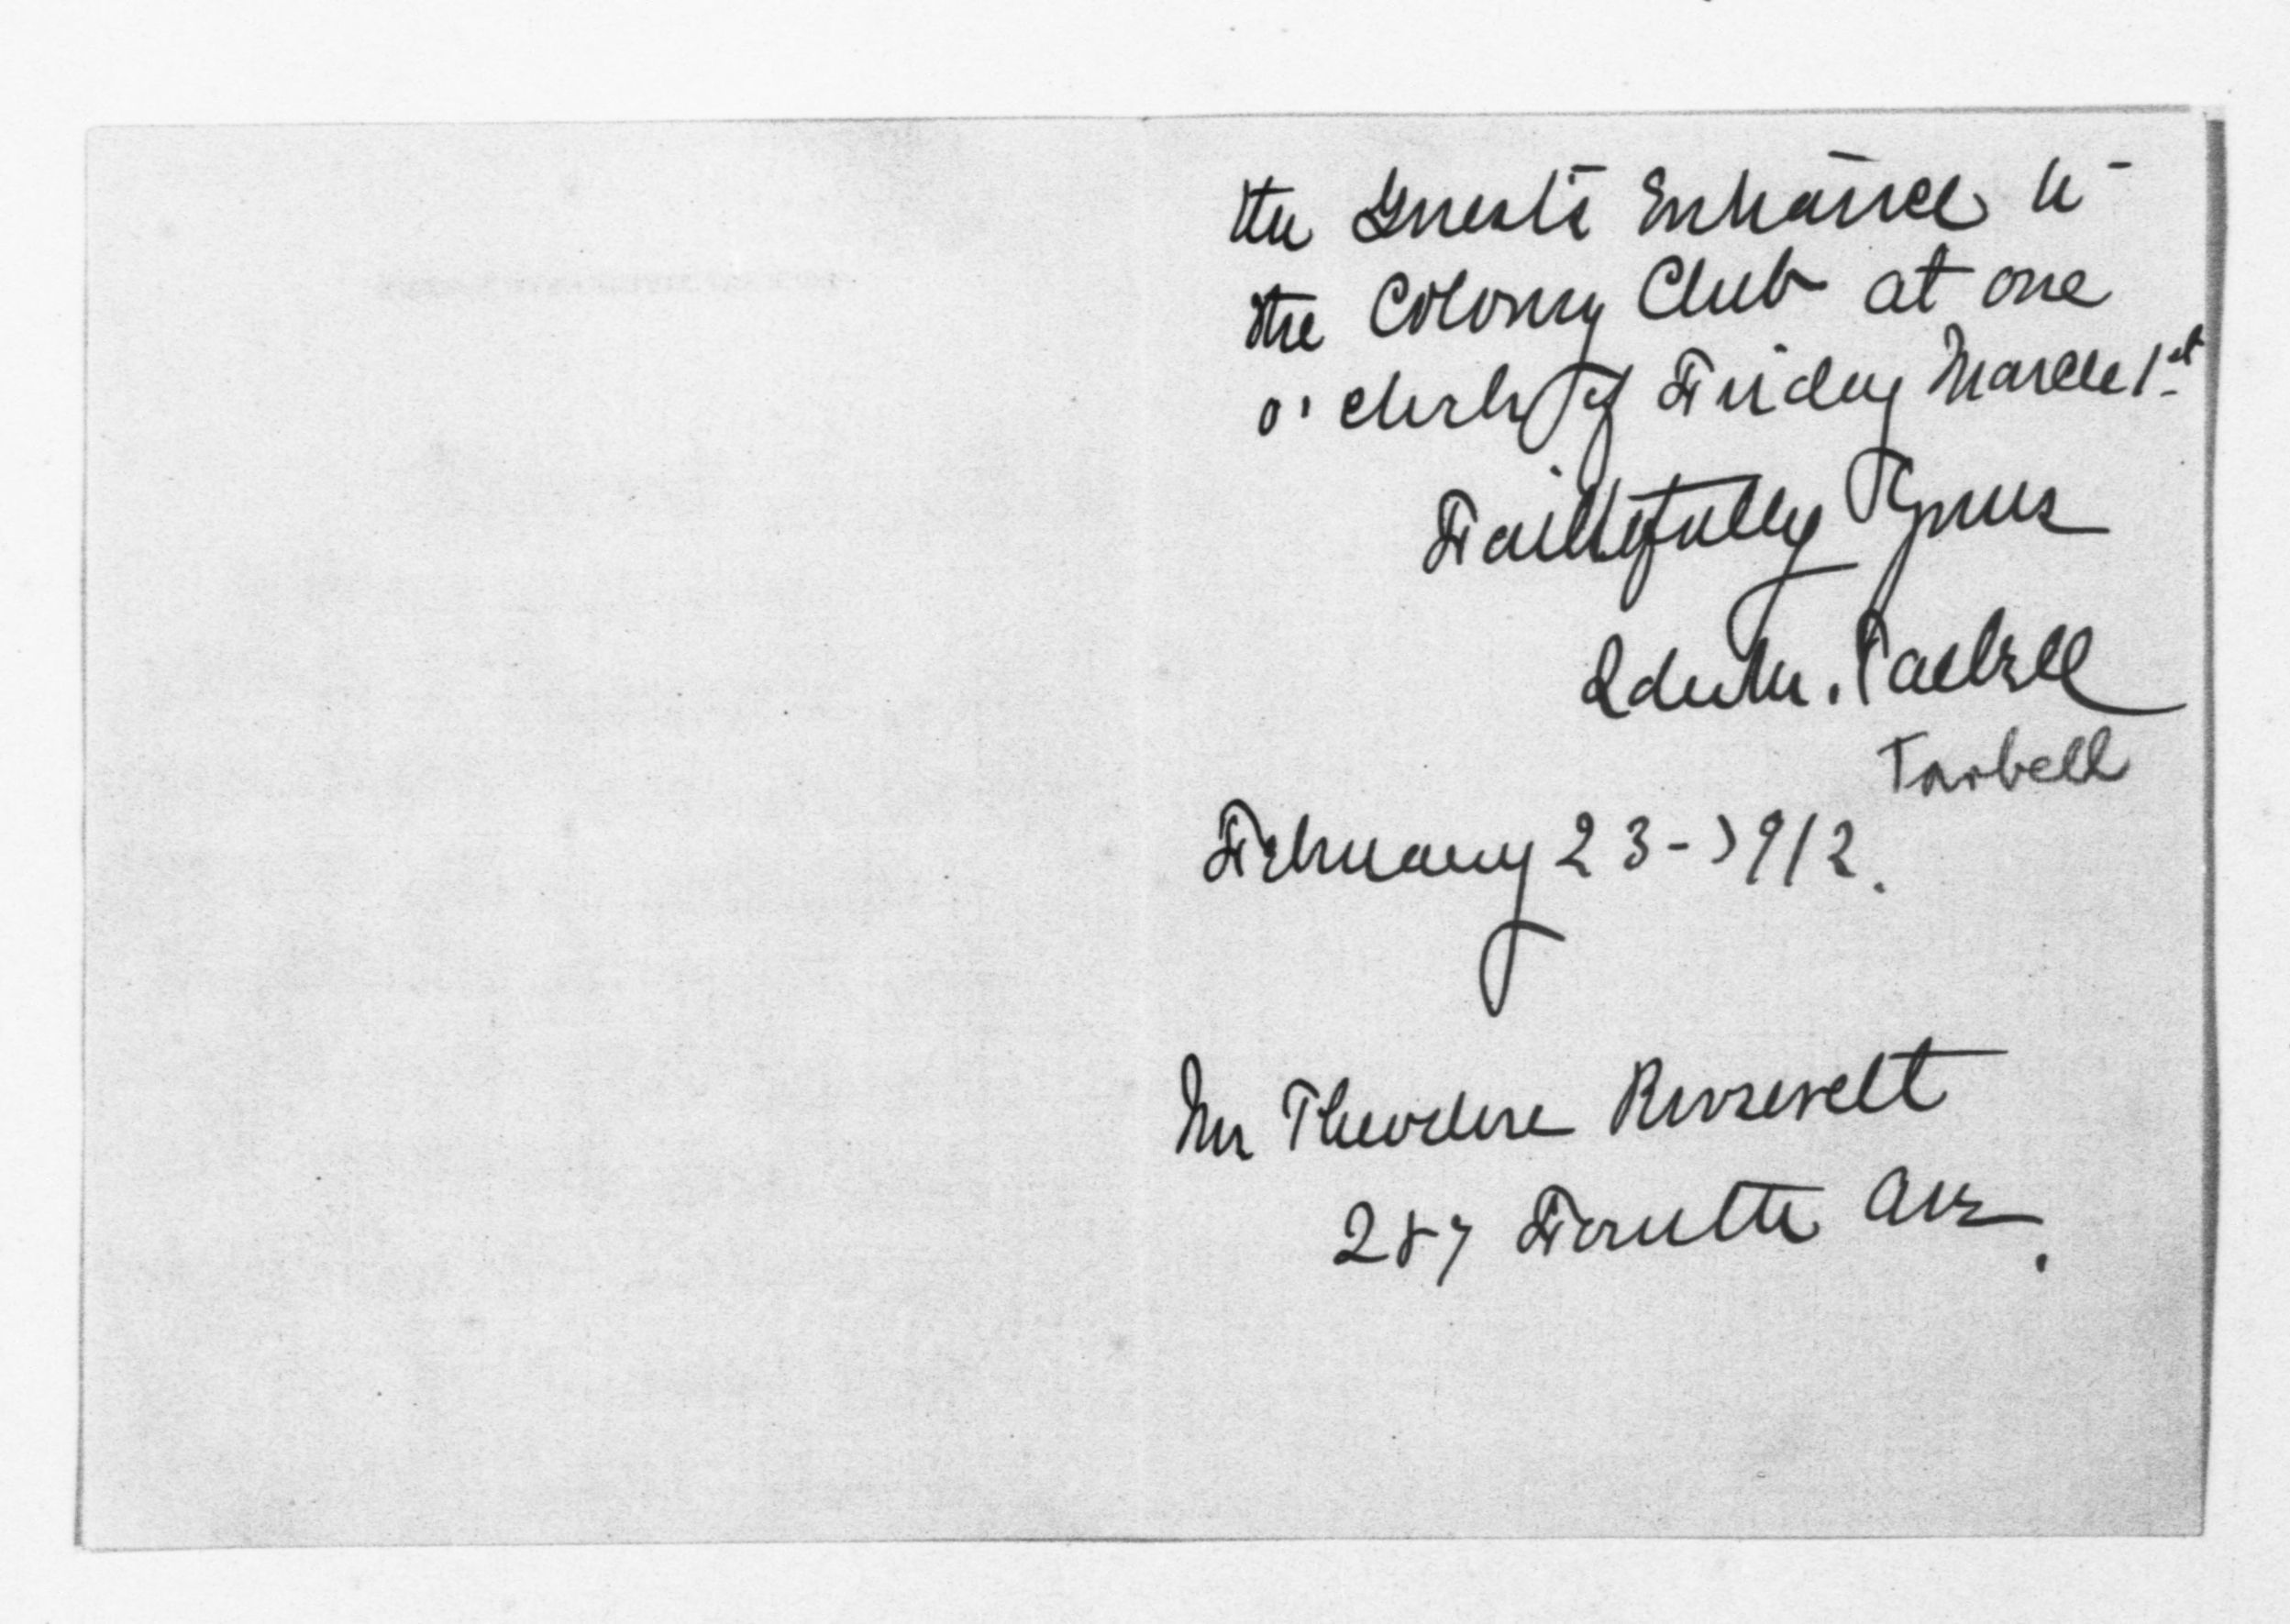 the Guest's Entrance to
the Colony Club at one
o'clock of Friday March 1st
Faithfully Yours
Ida M. Tarbell
Tarbell
February 23-1912.
Mr Theodore Roosevelt
287 Fourth Ave.